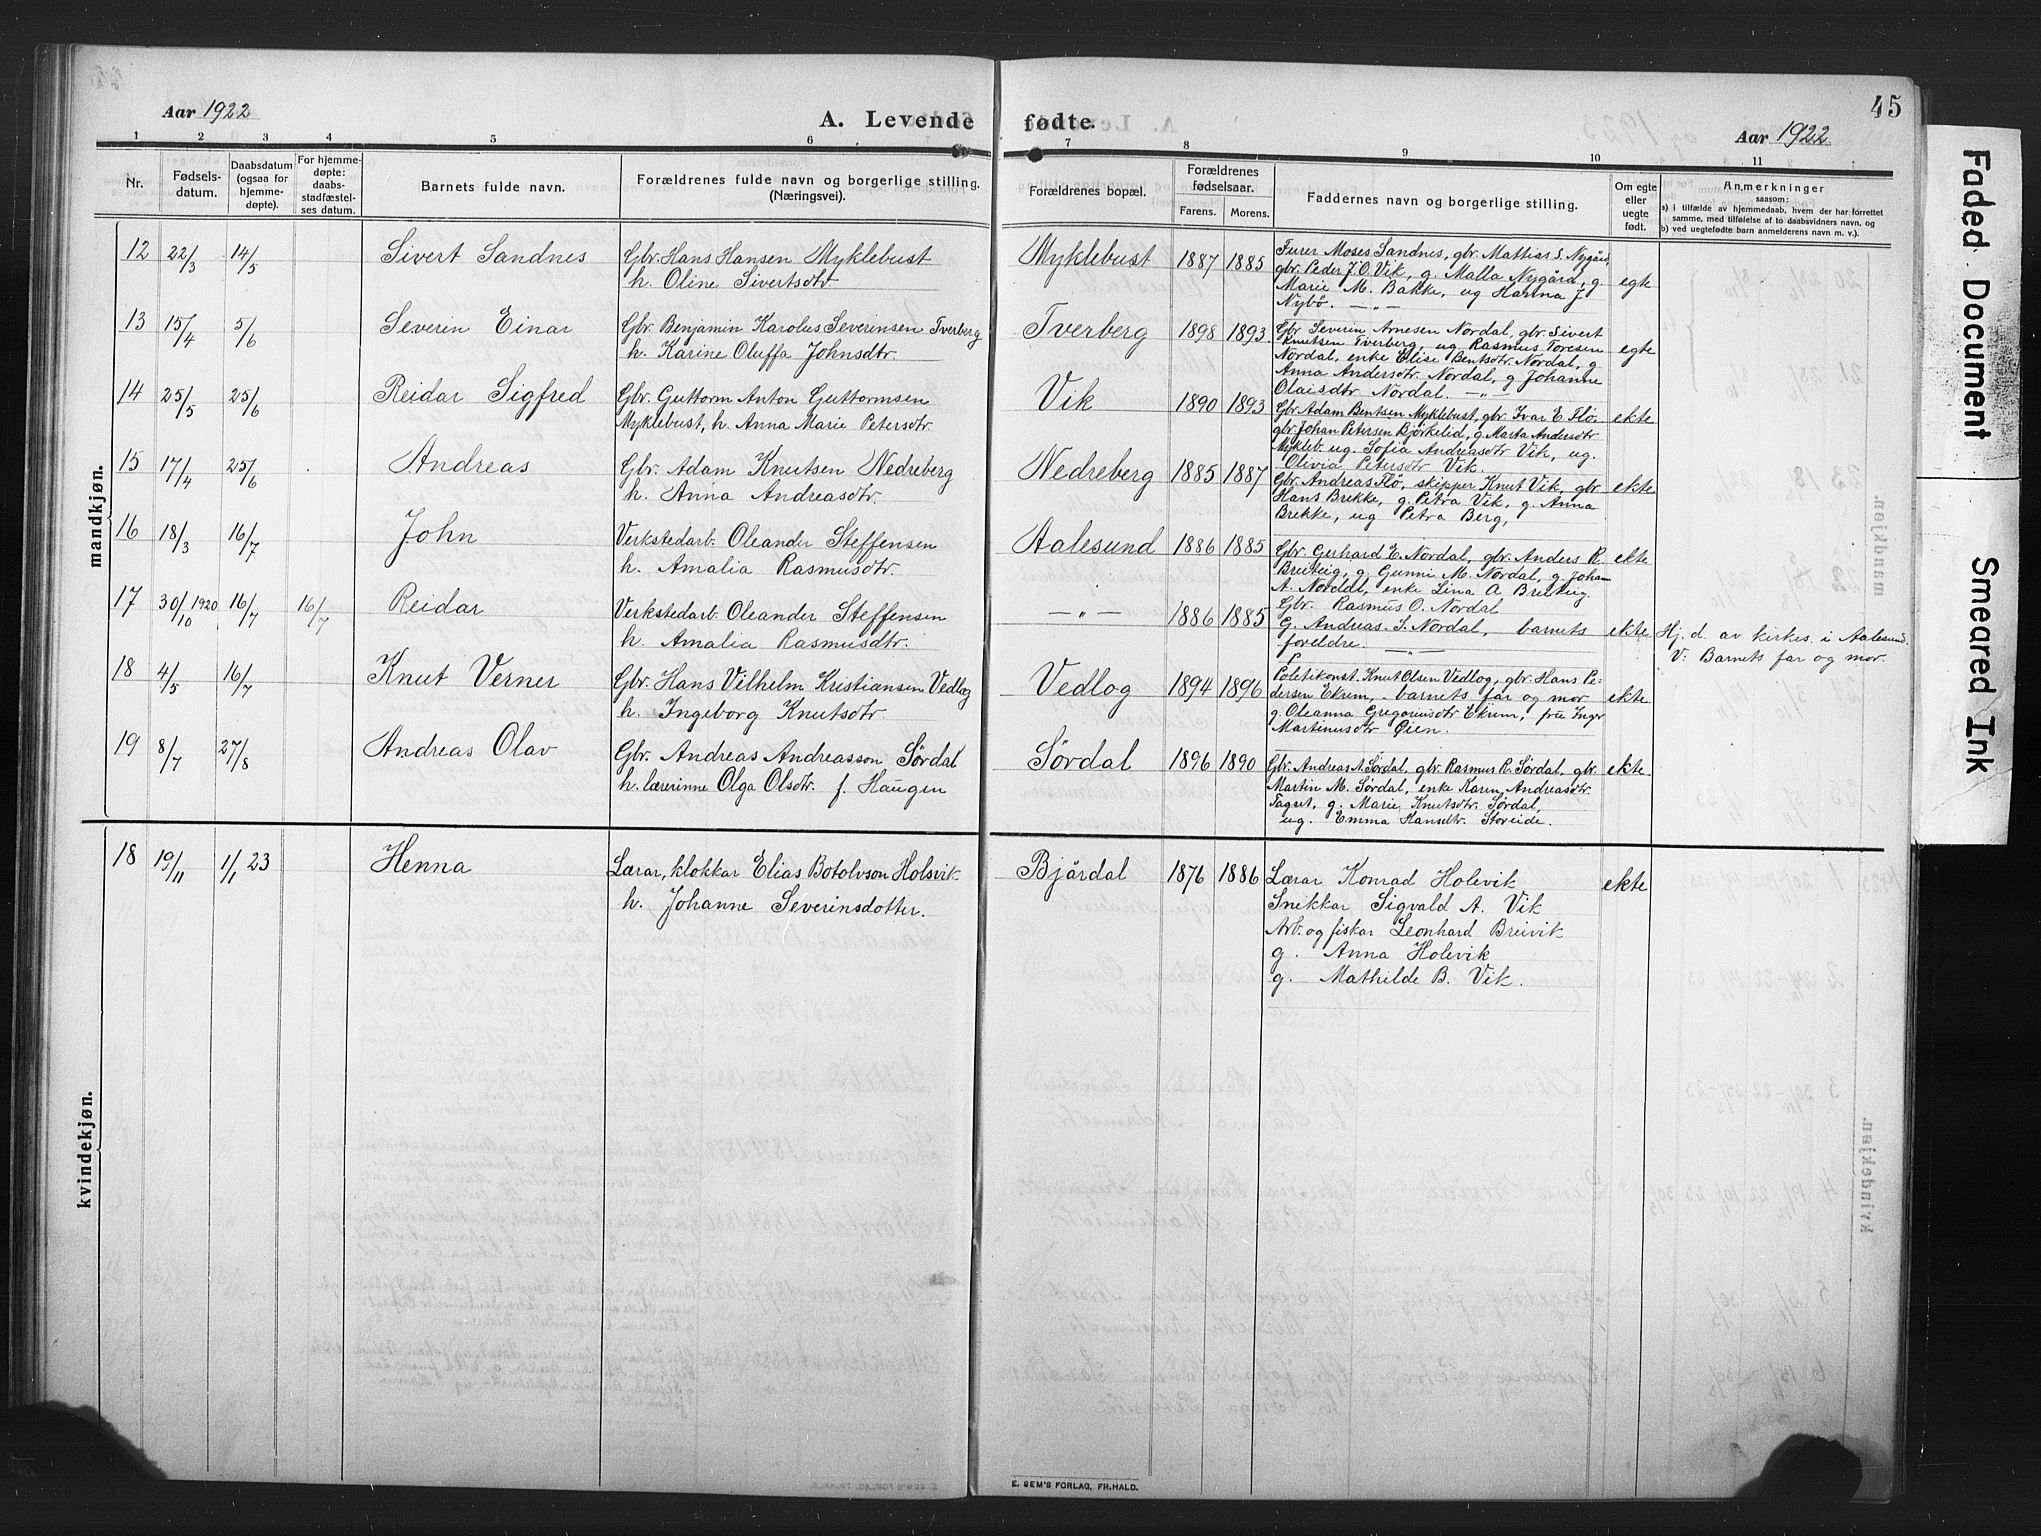 45
Aar 1922
A. Levende fødte.
Aar 1922.
1 2 3 4 5 6 7 8 9 10 11
Nr.
Fødsels-
datum.
Daabsdatum
(ogsaa for
hjemme-
døpte).
For hjemme-
døpte:
daabs-
stadfæstel-
ses datum.
Barnets fulde navn.
Forældrenes fulde navn og borgerlige stilling.
(Næringsvei).
Forældrenes bopæl.
Forældrenes
fødselsaar.
Farens. Morens.
Faddernes navn og borgerlige stilling.
Om egte
eller
uegte
født.
Anmerkninger
saasom:
a) i tilfælde av hjemmedaab, hvem der har forrettet
samme, med tilføielse af to daabsvidners navn, og
b) ved uegtefødte barn anmelderens navn m. v.).
mandkjøn.
12 22/3 14/5 Sivert Sandnes
Gbr. Hans Hansen Myklebust
h. Oline Sivertsdtr
Myklebust 1887 1885
Furer Moses Sandnes, gbr. Mathias S. Nygård,
gbr. Peder J. O. Vik, g. Malla Nygård, g.
Marie M. Bakke, ug Hanna J
Nybø. — „ —
egte
13 15/4 5/6 Severin Einar
Gbr. Benjamin Karolus Severinsen Tverberg
h. Karine Oluffa Johnsdtr.
Tverberg 1898 1893.
Gbr Severin Arnesen Nordal, gbr. Sivert
Knutsen Tverberg, ug. Rasmus Toresen
Nordal, enke Elise Bentsdtr. Nordal, g
Anna Andersdtr. Nordal, g Johanne
Olaisdtr Nordal. — „ —
egte
14 25/5 25/6 Reidar Sigfred
Gbr. Guttorm Anton Guttormsen
Myklebust, h. Anna Marie Petersdtr.
Vik 1890 1893
Gbr. Adam Bentsen Myklebust, gbr. Ivar E. Flø.
gbr. Johan Petersen Bjørkelid, g. Marta Andersdtr
Mykleb. ug. Sofia Andreasdtr Vik, ug.
Olivia Petersdtr Vik.
ekte
15 17/4 25/6 Andreas
Gbr. Adam Knutsen Nedreberg
h. Anna Andreasdtr.
Nedreberg 1885 1887
Gbr. Andreas Flö, skipper Knut Vik, gbr.
Hans Brekke, g. Petra Vik, g. Anna
Brekke, ug Petra Berg,
ekte
16 18/3 16/7 John
Verkstedarb. Oleander Steffensen
h. Amalia Rasmusdtr.
Aalesund 1886 1885
Gbr. Gerhard E. Nordal, gbr. Anders R.
Breiteig, g. Gunni M. Nordal, g. Johan
A. Nordal, enke Lina A Breiteig.
Gbr. Rasmus O. Nordal
ekte
17 30/10 1920 16/7 16/7 Reidar
Verkstedarb. Oleander Steffensen
h. Amalia Rasmusdtr.
— „ — 1886 1885
G. Andreas S. Nordal, barnets
foreldre. — „ —
ekte
Hj. d. av kirkes. i Aalesund.
V: Barnets far og mor.
18 4/5 16/7 Knut Verner
Gbr. Hans Vilhelm Kristiansen Vedlog
h. Ingeborg Knutsdtr.
Vedlog 1894 1896
Politikonst. Knut Olsen Vedlog, gbr. Hans Pe-
dersen Ekrem, - barnets far og mor
g. Oleanna Gregoriusdtr Ekrem, fru Inger
Martinusdtr Øien.
ekte
19 8/7 27/8 Andreas Olav
Gbr. Andreas Andreasson Sørdal
h. lærerinne Olga Olsdtr. f. Haugen
Sørdal 1896 1890
Gbr. Andreas A. Sørdal, gbr. Rasmus R. Sørdal, gbr.
Martin M. Sørdal, enke Karen Andreasdtr.
Tagset, g. Marie Knutsdtr. Sørdal,
ug. Emma Hansdtr. Storeide.
ekte
kvindekjøn.
18 19/11 1/1 23 Henna
Lærar, klokkar Elias Botolvson Holsvik
h. Johanne Severinsdotter.
Bjårdal 1876 1886
Lærar Konrad Holevik
Snikkar Sigvald A. Vik
Arb. og fiskar Leonhard Breivik
g. Anna Holevik
g. Mathilde B. Vik.
ekte
E. SEM'S FORLAG, FR.HALD.
Faded Document
Smeared Ink